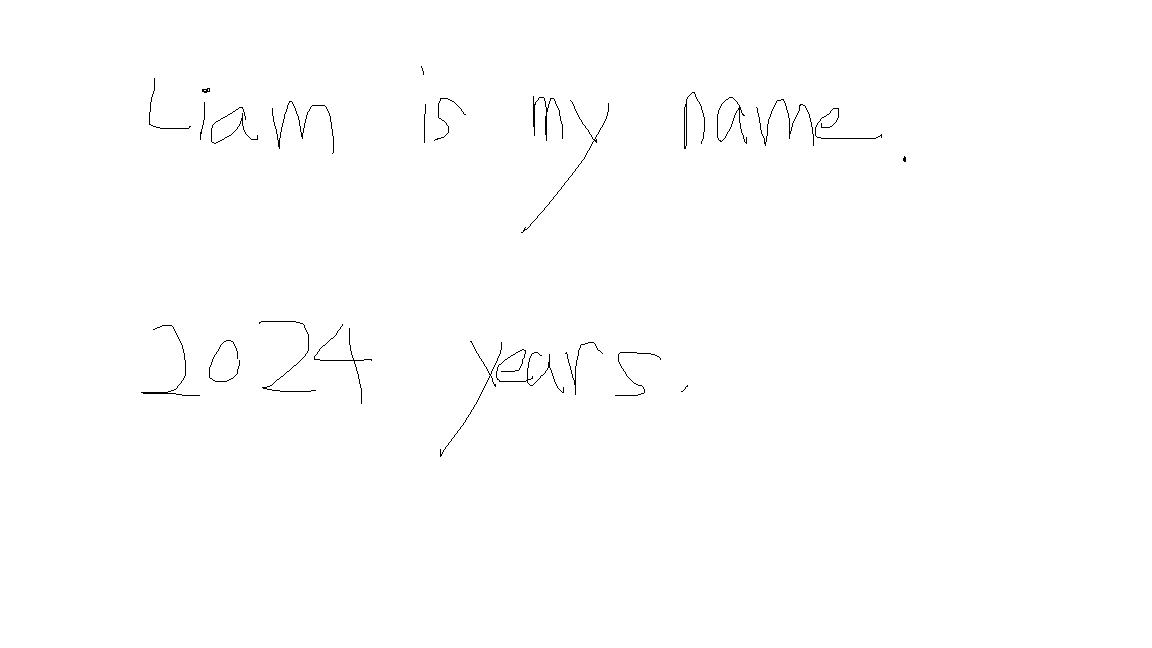 Liam is my name.
2024 years.